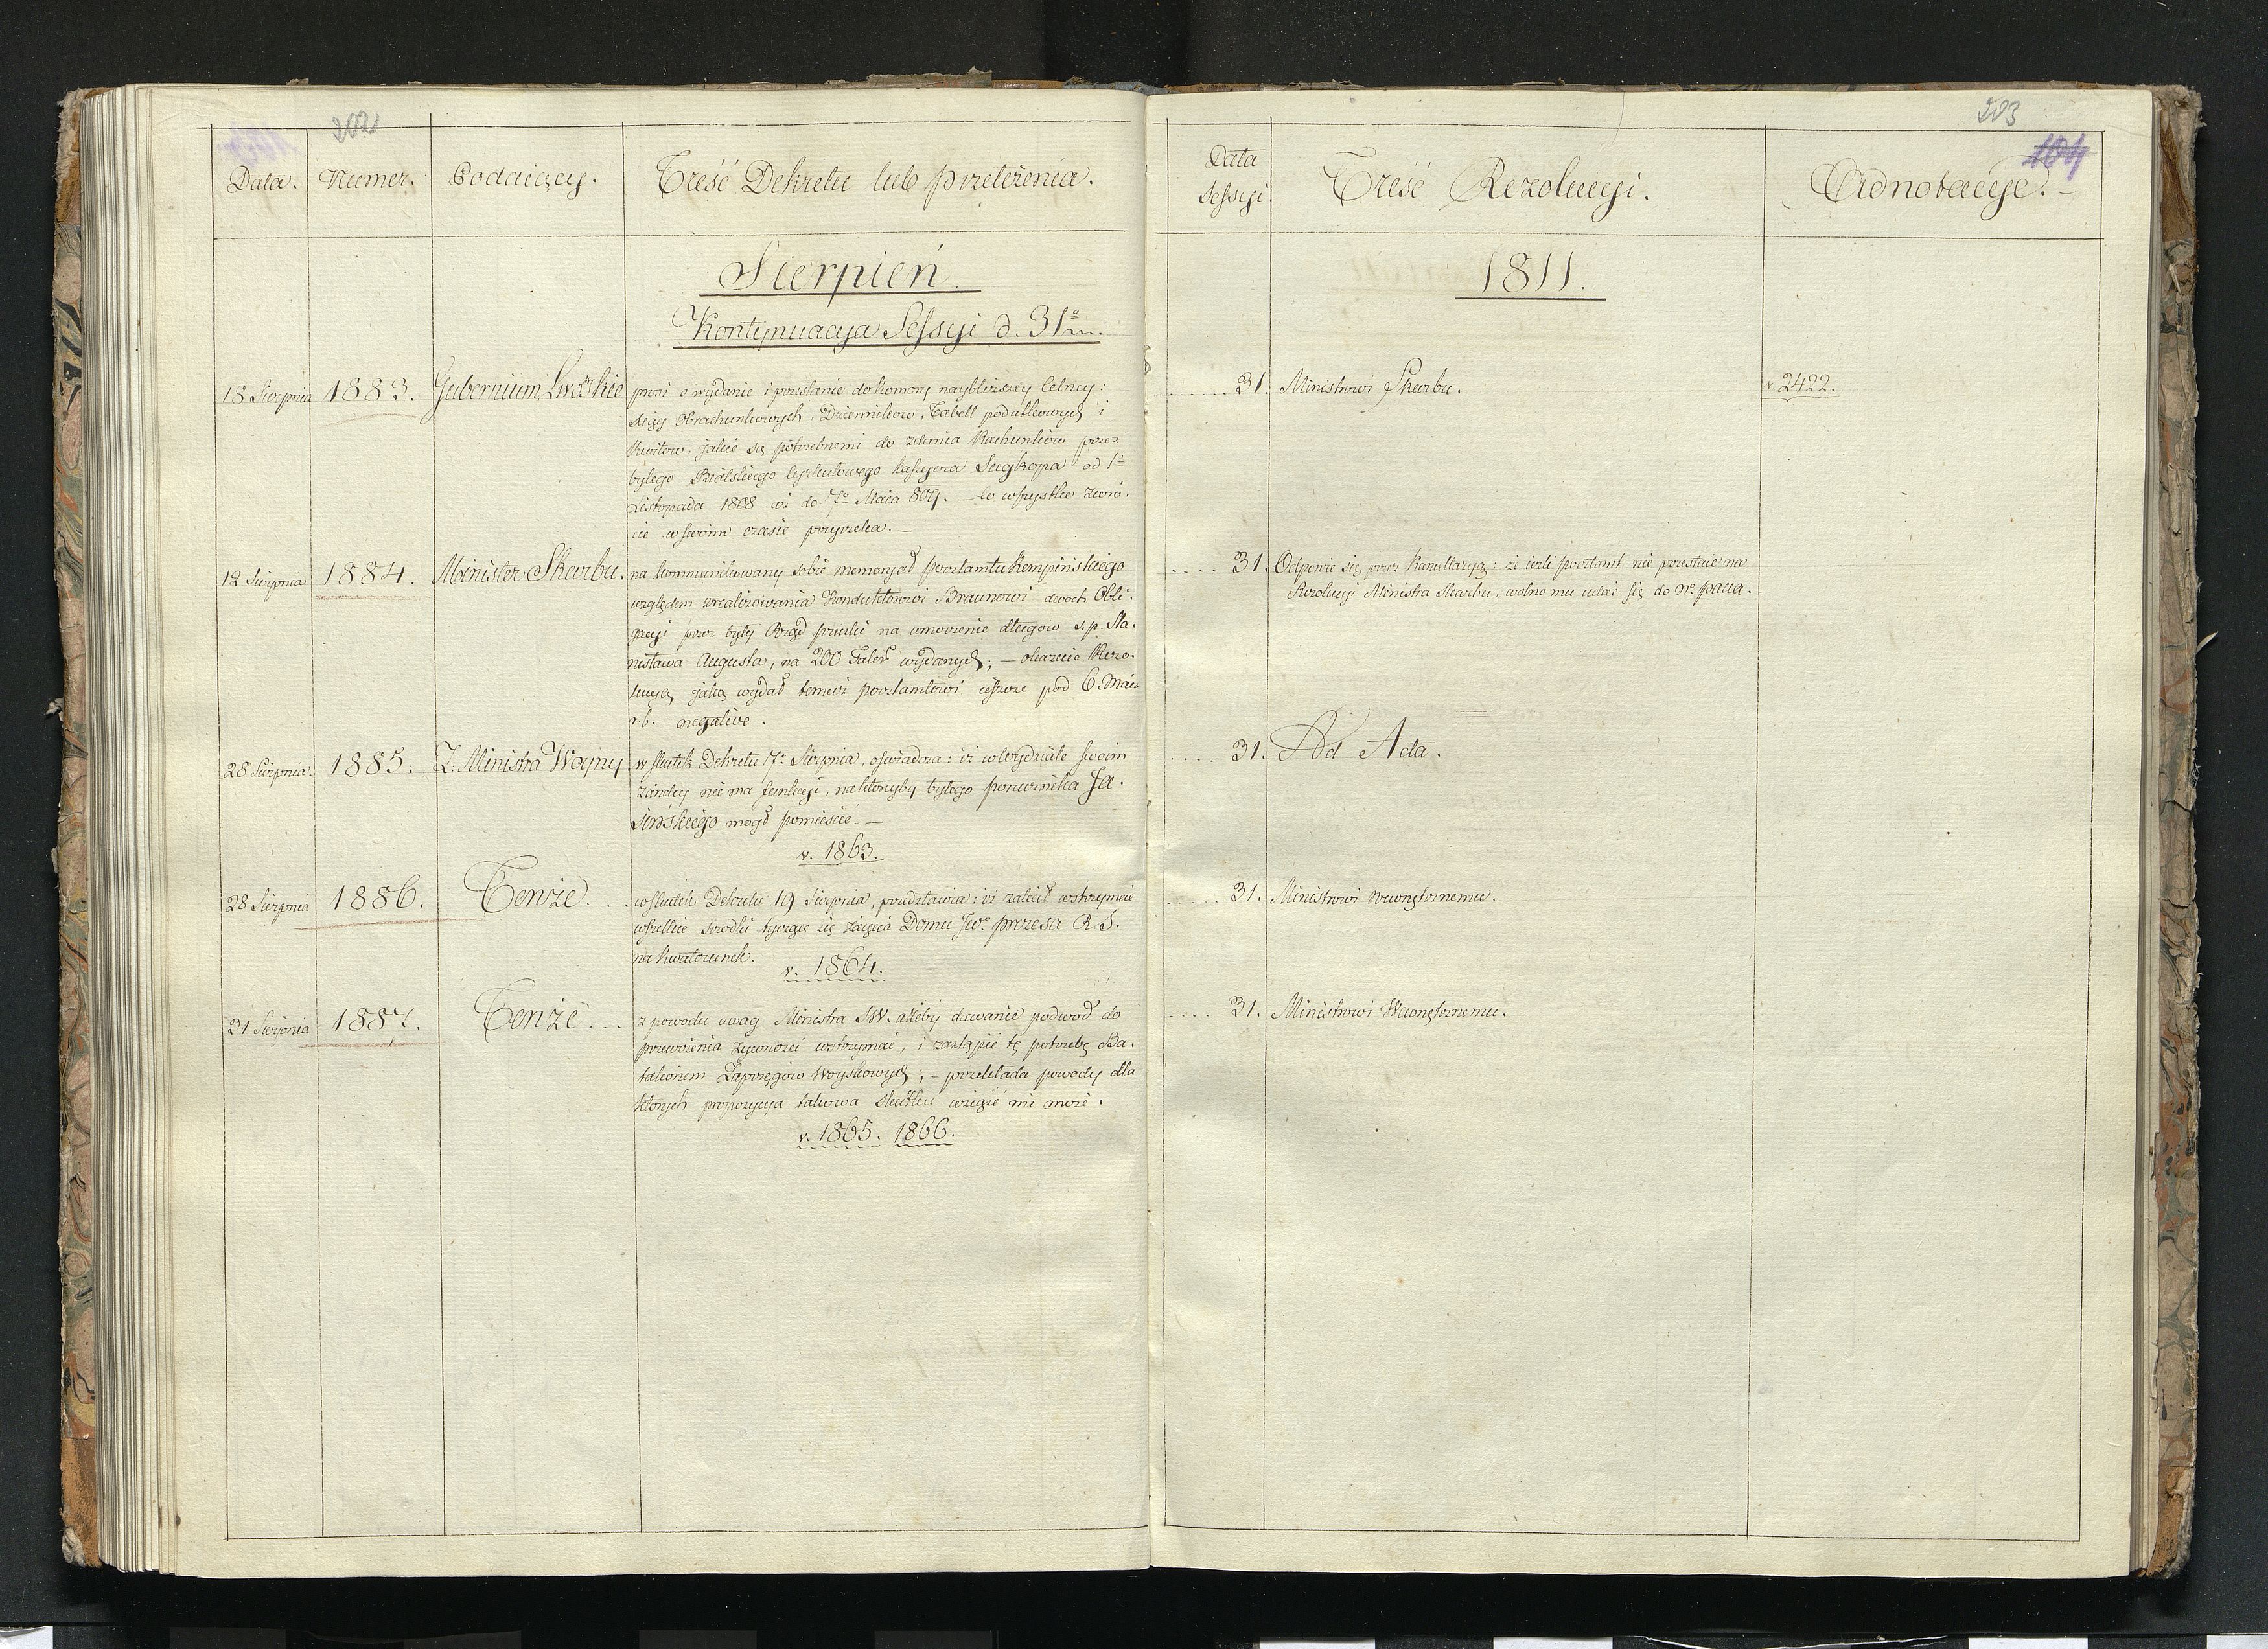 202
Data. Numer. Podaiący. Treść Dekretu lub przełożenia.
Sierpień.
Kontynuacya Sessyi d. 31º m.
18 Sierpnia 1883. Gubernium Lwowskie prosi o wydanie i przesłanie do komory naybliższey Celney:
Xiąg Obrachunkowych, Dzienników, Tabell podatkowych i
Kwitów, jakie są potrzebnemi do zdania Rachunków przez
byłego Bialskiego Cyrkułowego Kassyera od 1º
Listopada 1808 aż do 7º Maia 809. — Co wszystko zwró-
cić w swoim czasie przyrzeka. —
12 Sierpnia 1884. Minister Skarbu. na kommunikowany sobie memoryał pocztamtu Kempińskiego
względem zrealizowania Konduktorowi Braunowi dwóch Obli-
gacyi przez były Rząd pruski na umorzenie długów s. p. Sta-
nisława Augusta, na 200 Taler wydanych; — okazuie Rezo-
lucyą jaką wydał temuż pocztamtowi ieszcze pod 6. Maia
r. b. negative.
28 Sierpnia. 1885. Z. Ministra Woyny. w skutek Dekretu 17º Sierpnia, oświadcza: iż w Wydziale swoim
żadney nie ma funkcyi, na któreyby byłego porucznika Ja-
sińskiego mogł pomieścić. —
v. 1863.
28 Sierpnia 1886. Tenże. . . w skutek Dekretu 19 Sierpnia, przedstawia: iż zalecił wstrzymać
wszelkie środki tyczące się zaięcia Domu Jwº prezesa R. S.
na kwaterunek.
v. 1864.
31 Sierpnia 1887. Tenże . . . z powodu uwag Ministra S W. ażeby dawanie podwód do
przewożenia żywności wstrzymać, i zastąpić tę potrzebę Ba-
talionem Zaprzęgów Woyskowych; — przekłada powody dla
których propozycya takowa skutku wziąść nie może.
v. 1865. 1866.
203
104
Data Sessyi Treść Rezolucyi. Adnotacye. —
1811.
31. Ministrowi Skarbu. v. 2422.
31. Odpowie się, przez Kancellaryą: że ieżli pocztamt nie przestaie na
Rezolucyi Ministra Skarbu, wolno mu udać się do Nº pana.
31. Ad Acta.
31. Ministrowi Wewnętrznemu.
31. Ministrowi Wewnętrznemu.